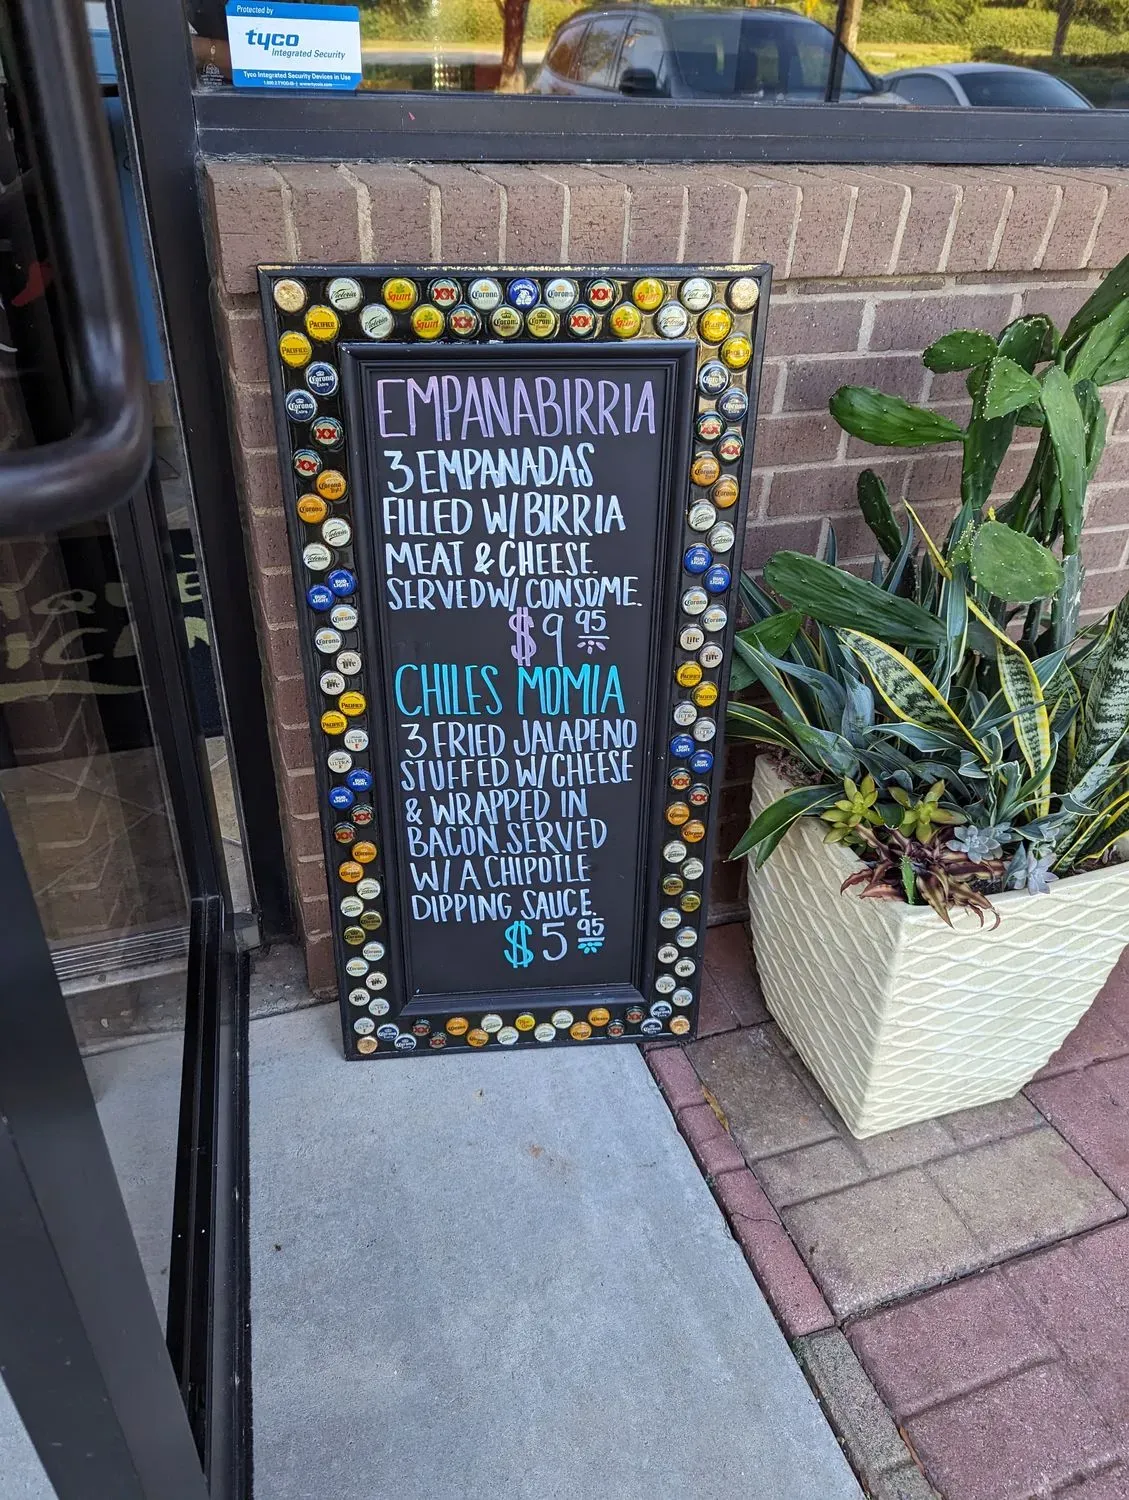 Protected by
tyco
Integrated Security
Tyco Integrated Security Devices in Use
EMPANABIRRIA
3 EMPANADAS
FILLED W/BIRRIA
MEAT & CHEESE.
SERVED W/ CONSOME.
$9 95
CHILES MOMIA
3 FRIED JALAPENO
STUFFED W/CHEESE
& WRAPPED IN
BACON. SERVED
W/ A CHIPOTLE
DIPPING SAUCE.
$5 95